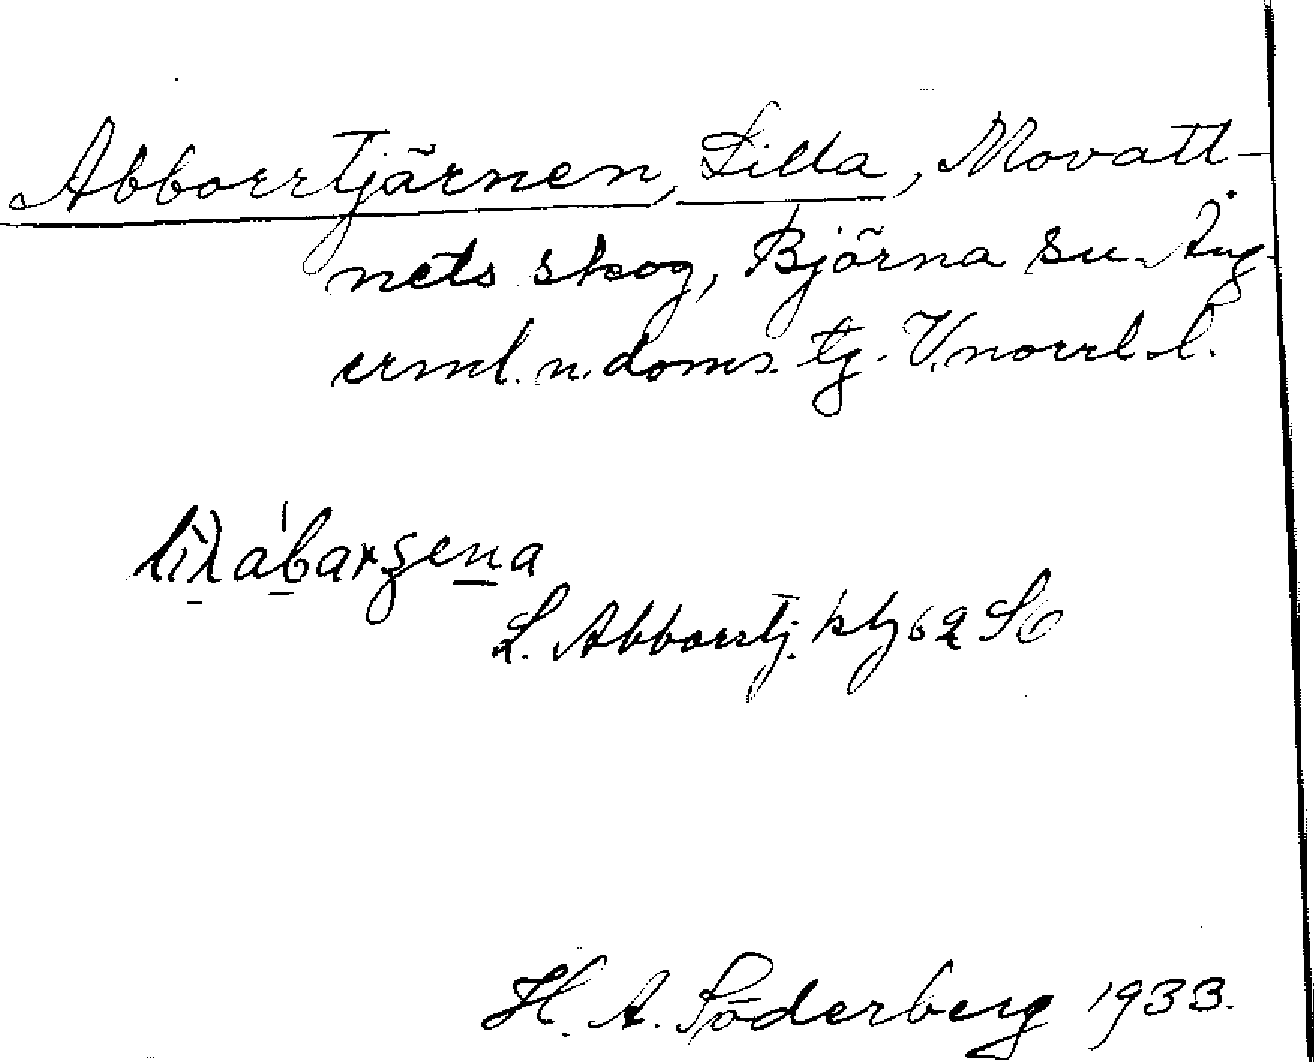 Abborrtjärnen, Lilla, Movatt-
nets skog, Björna sn. Ång-
erml. n. doms. tg. V.norrl. l.
L. Abborrtj. ktbl 62 SO
H. A. Söderberg 1933.